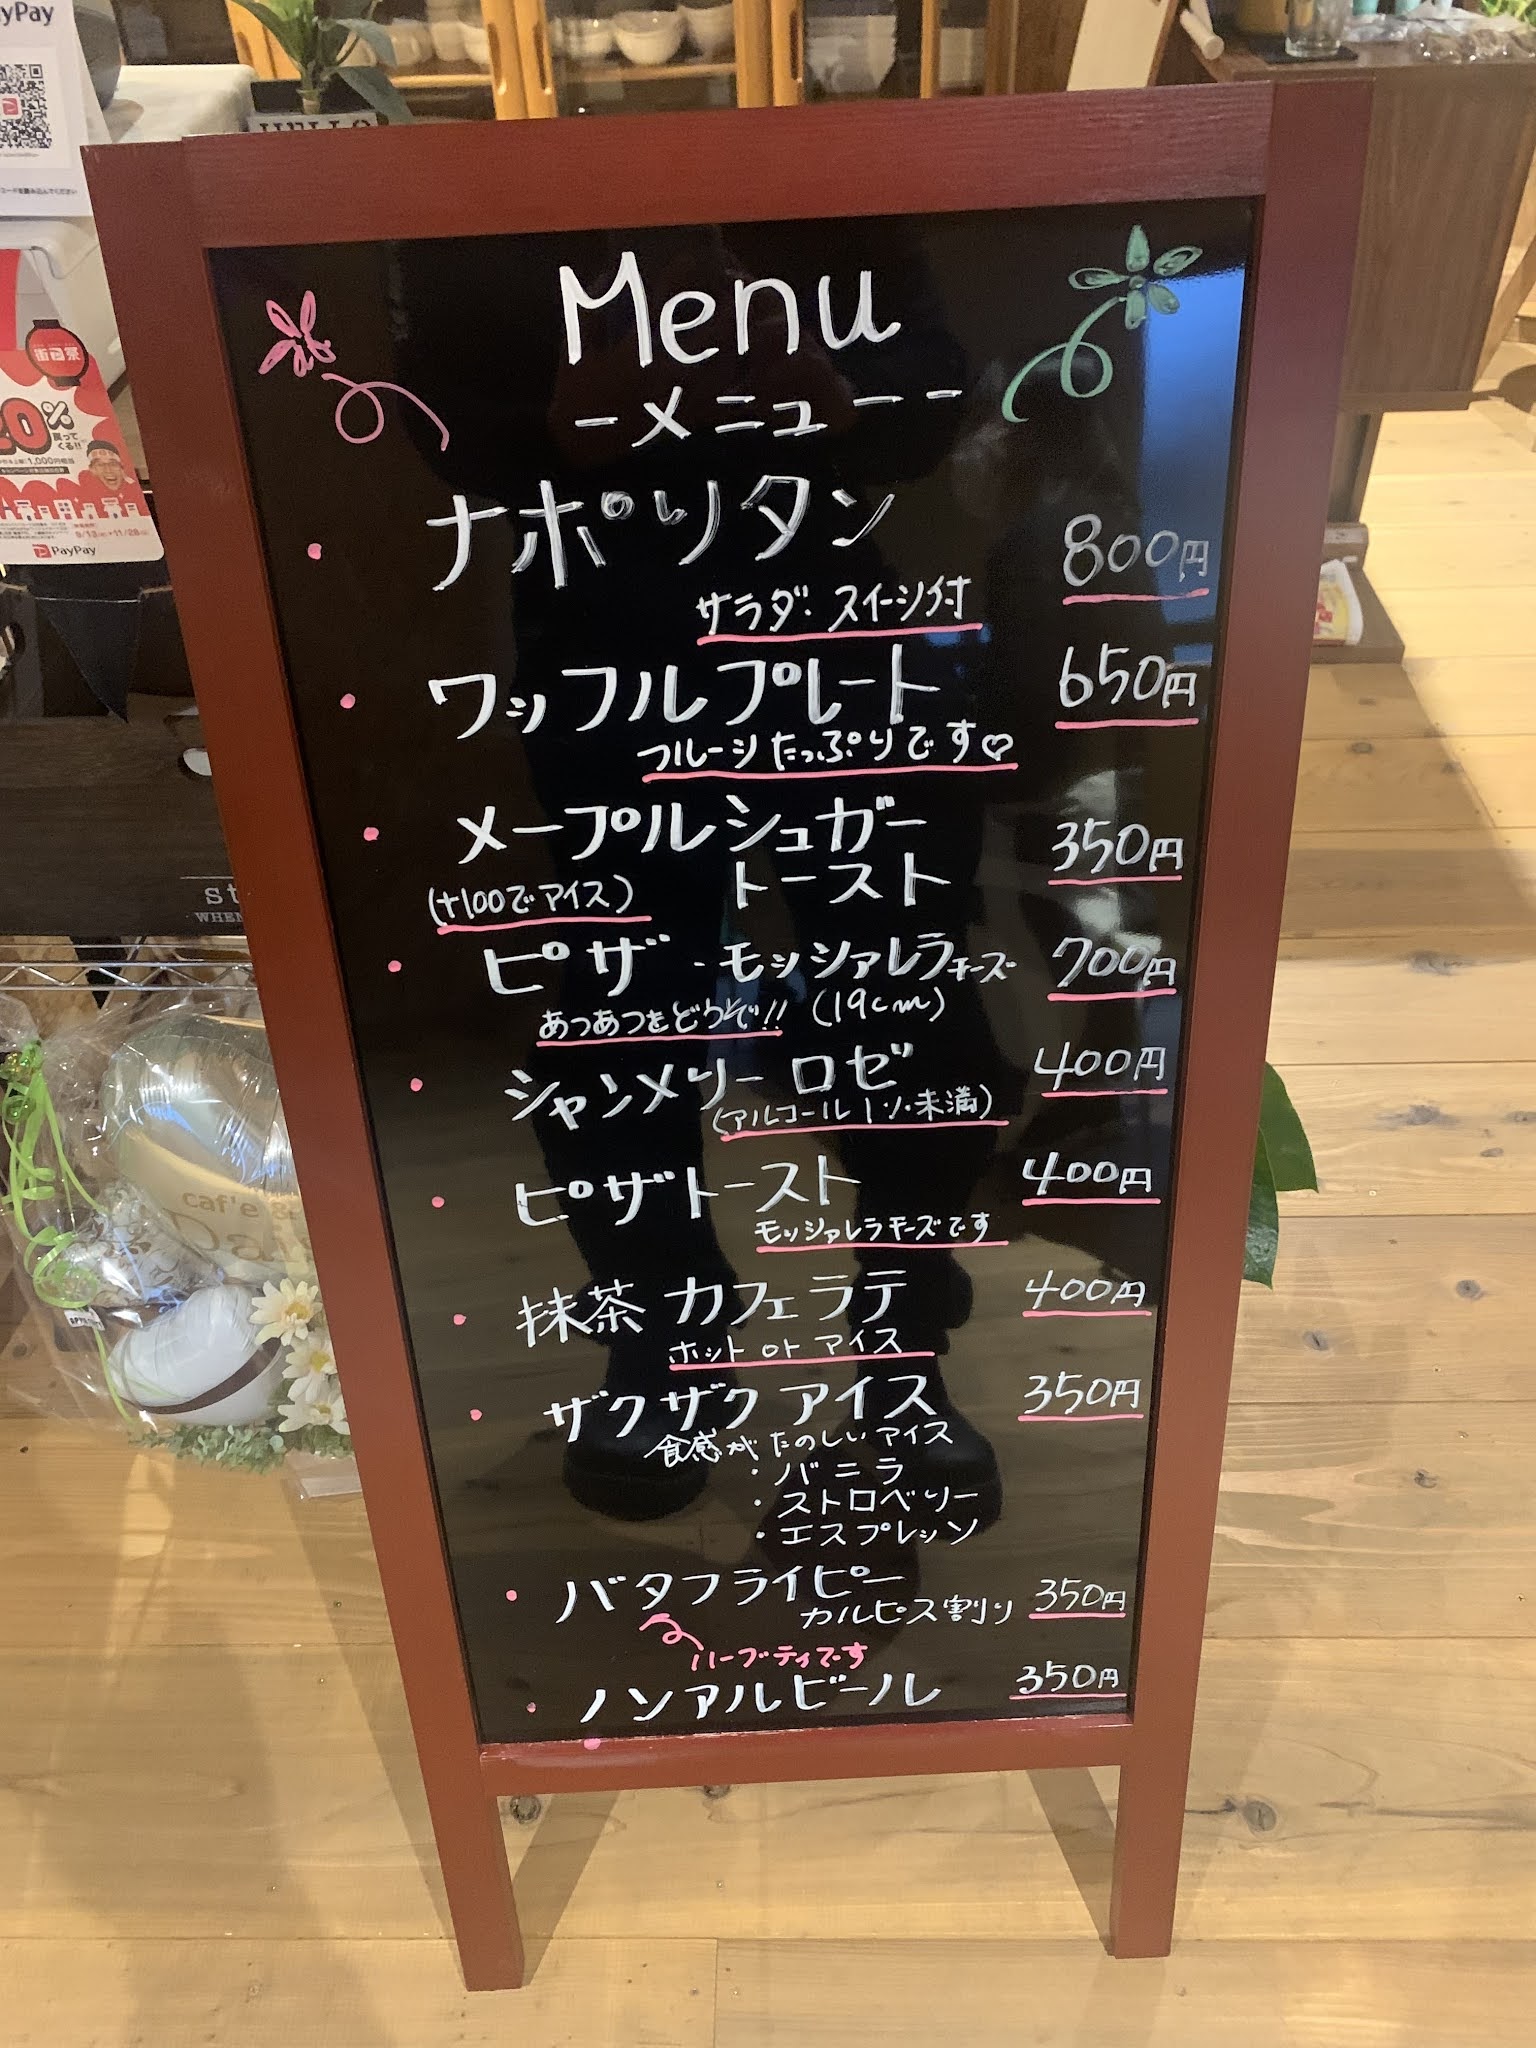 yPay
コードを読み込んでください
HELLO
街の祭
20%
戻って
くる!!
PayPay
st
WHEN
caf'e &
Menu
ーメニューー
ナポリタン 800円
サラダ・スイーツ付
ワッフルプレート 650円
フルーツたっぷりです♡
メープルシュガー
トースト 350円
(+100でアイス)
ピザ・モッツァレラチーズ 700円
あつあつをどうぞ!! (19cm)
シャンメリー ロゼ 400円
(アルコール1%未満)
ピザトースト 400円
モッツァレラチーズです
抹茶 カフェラテ 400円
ホット or アイス
ザクザク アイス 350円
食感が たのしいアイス
・バニラ
・ストロベリー
・エスプレッソ
バタフライピー
カルピス割り 350円
ハーブティです
ノンアルビール 350円